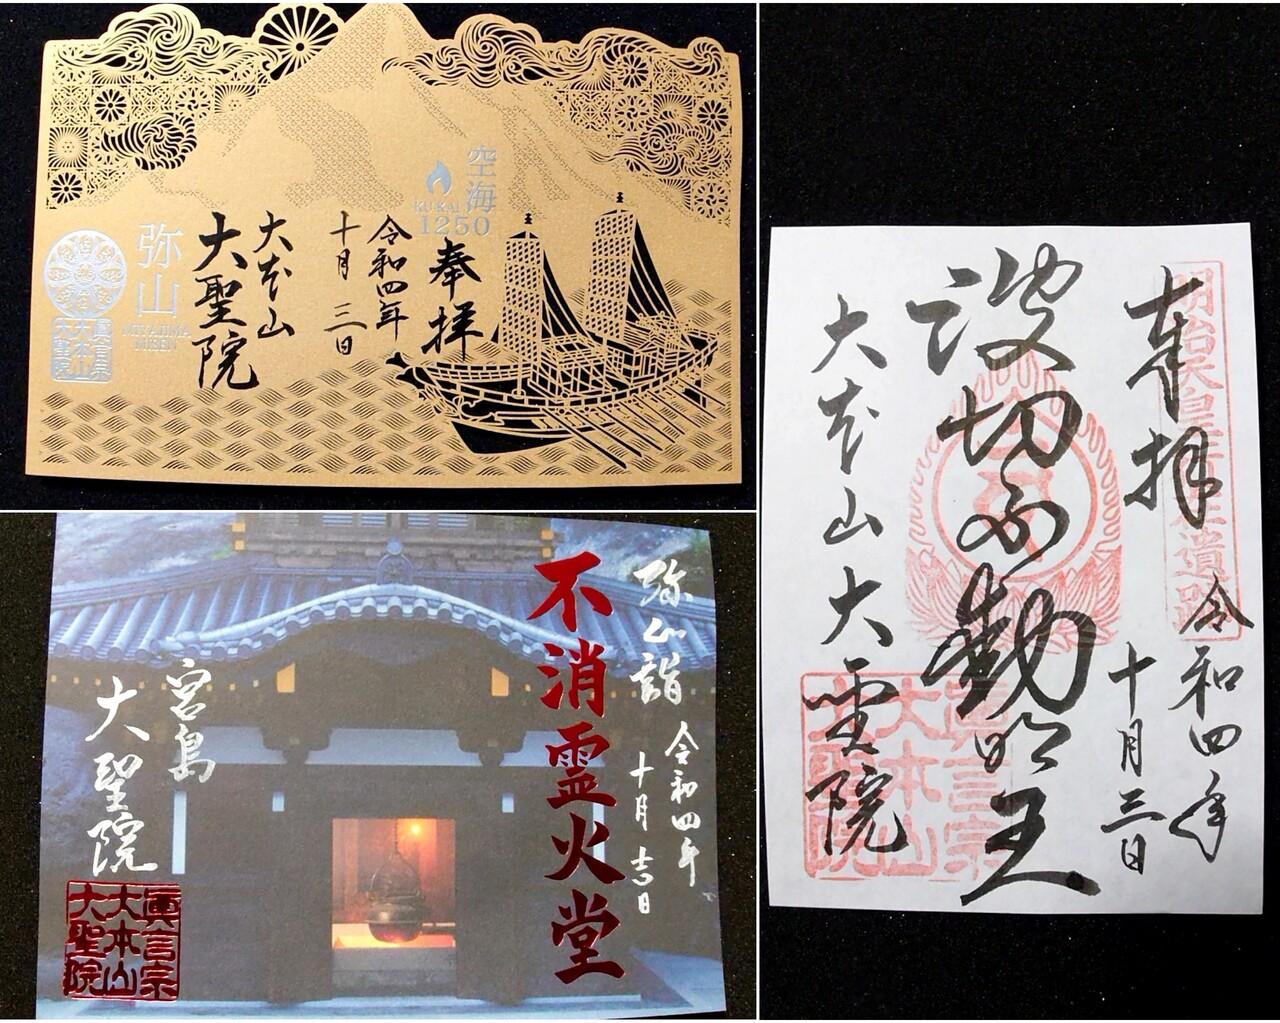 空海
KUKAI
1250
奉拝
令和四年
十月三日
大本山
大聖院
弥山
MIYAJIMA
MISEN
眞言宗
大本山
大聖院
弥山詣
令和四年
十月吉日
不消霊火堂
宮島
大聖院
眞言宗
大本山
大聖院
奉拝
明治天皇
遺跡
令和四年
十月三日
波切不動明王
大本山大聖院
眞言宗
大本山
大聖院